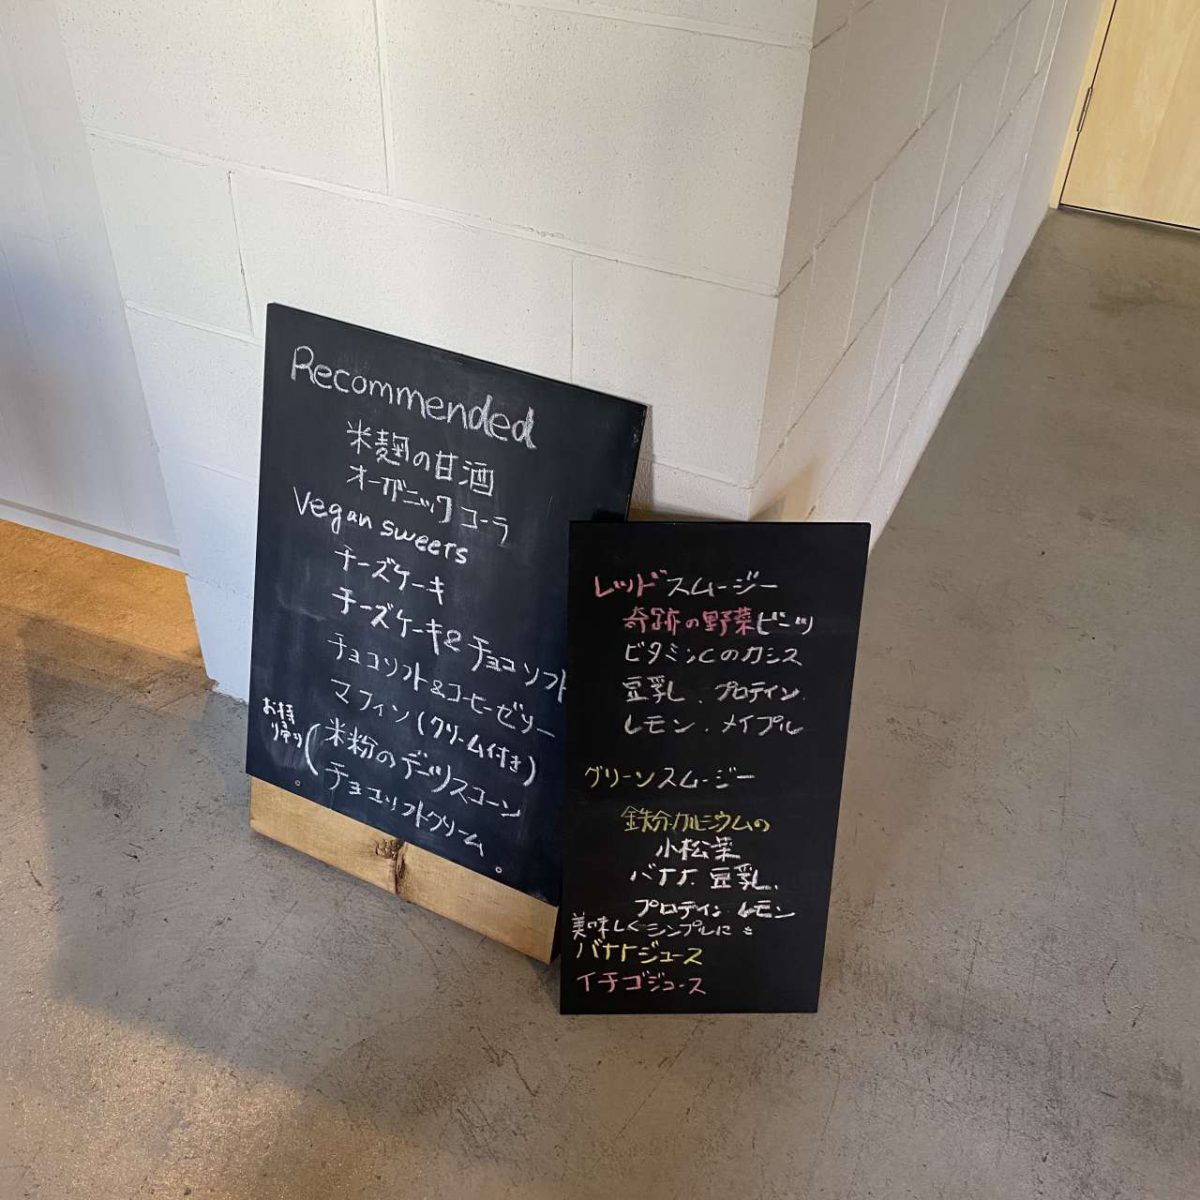 Recommended
米麹の甘酒
オーガニックコーラ
Vegan sweets
チーズケーキ
チーズケーキ&チョコソフト
チョコソフト&コーヒーゼリー
マフィン(クリーム付き)
お持り帰り
(米粉のデーツスコーン
チョコソフトクリーム
レッドスムージー
奇跡の野菜ビーツ
ビタミンCのカシス
豆乳、プロテイン、
レモン、メイプル
グリーンスムージー
鉄分・カルシウムの
小松菜
バナナ、豆乳、
プロテイン、レモン
美味しくシンプルに
バナナジュース
イチゴジュース